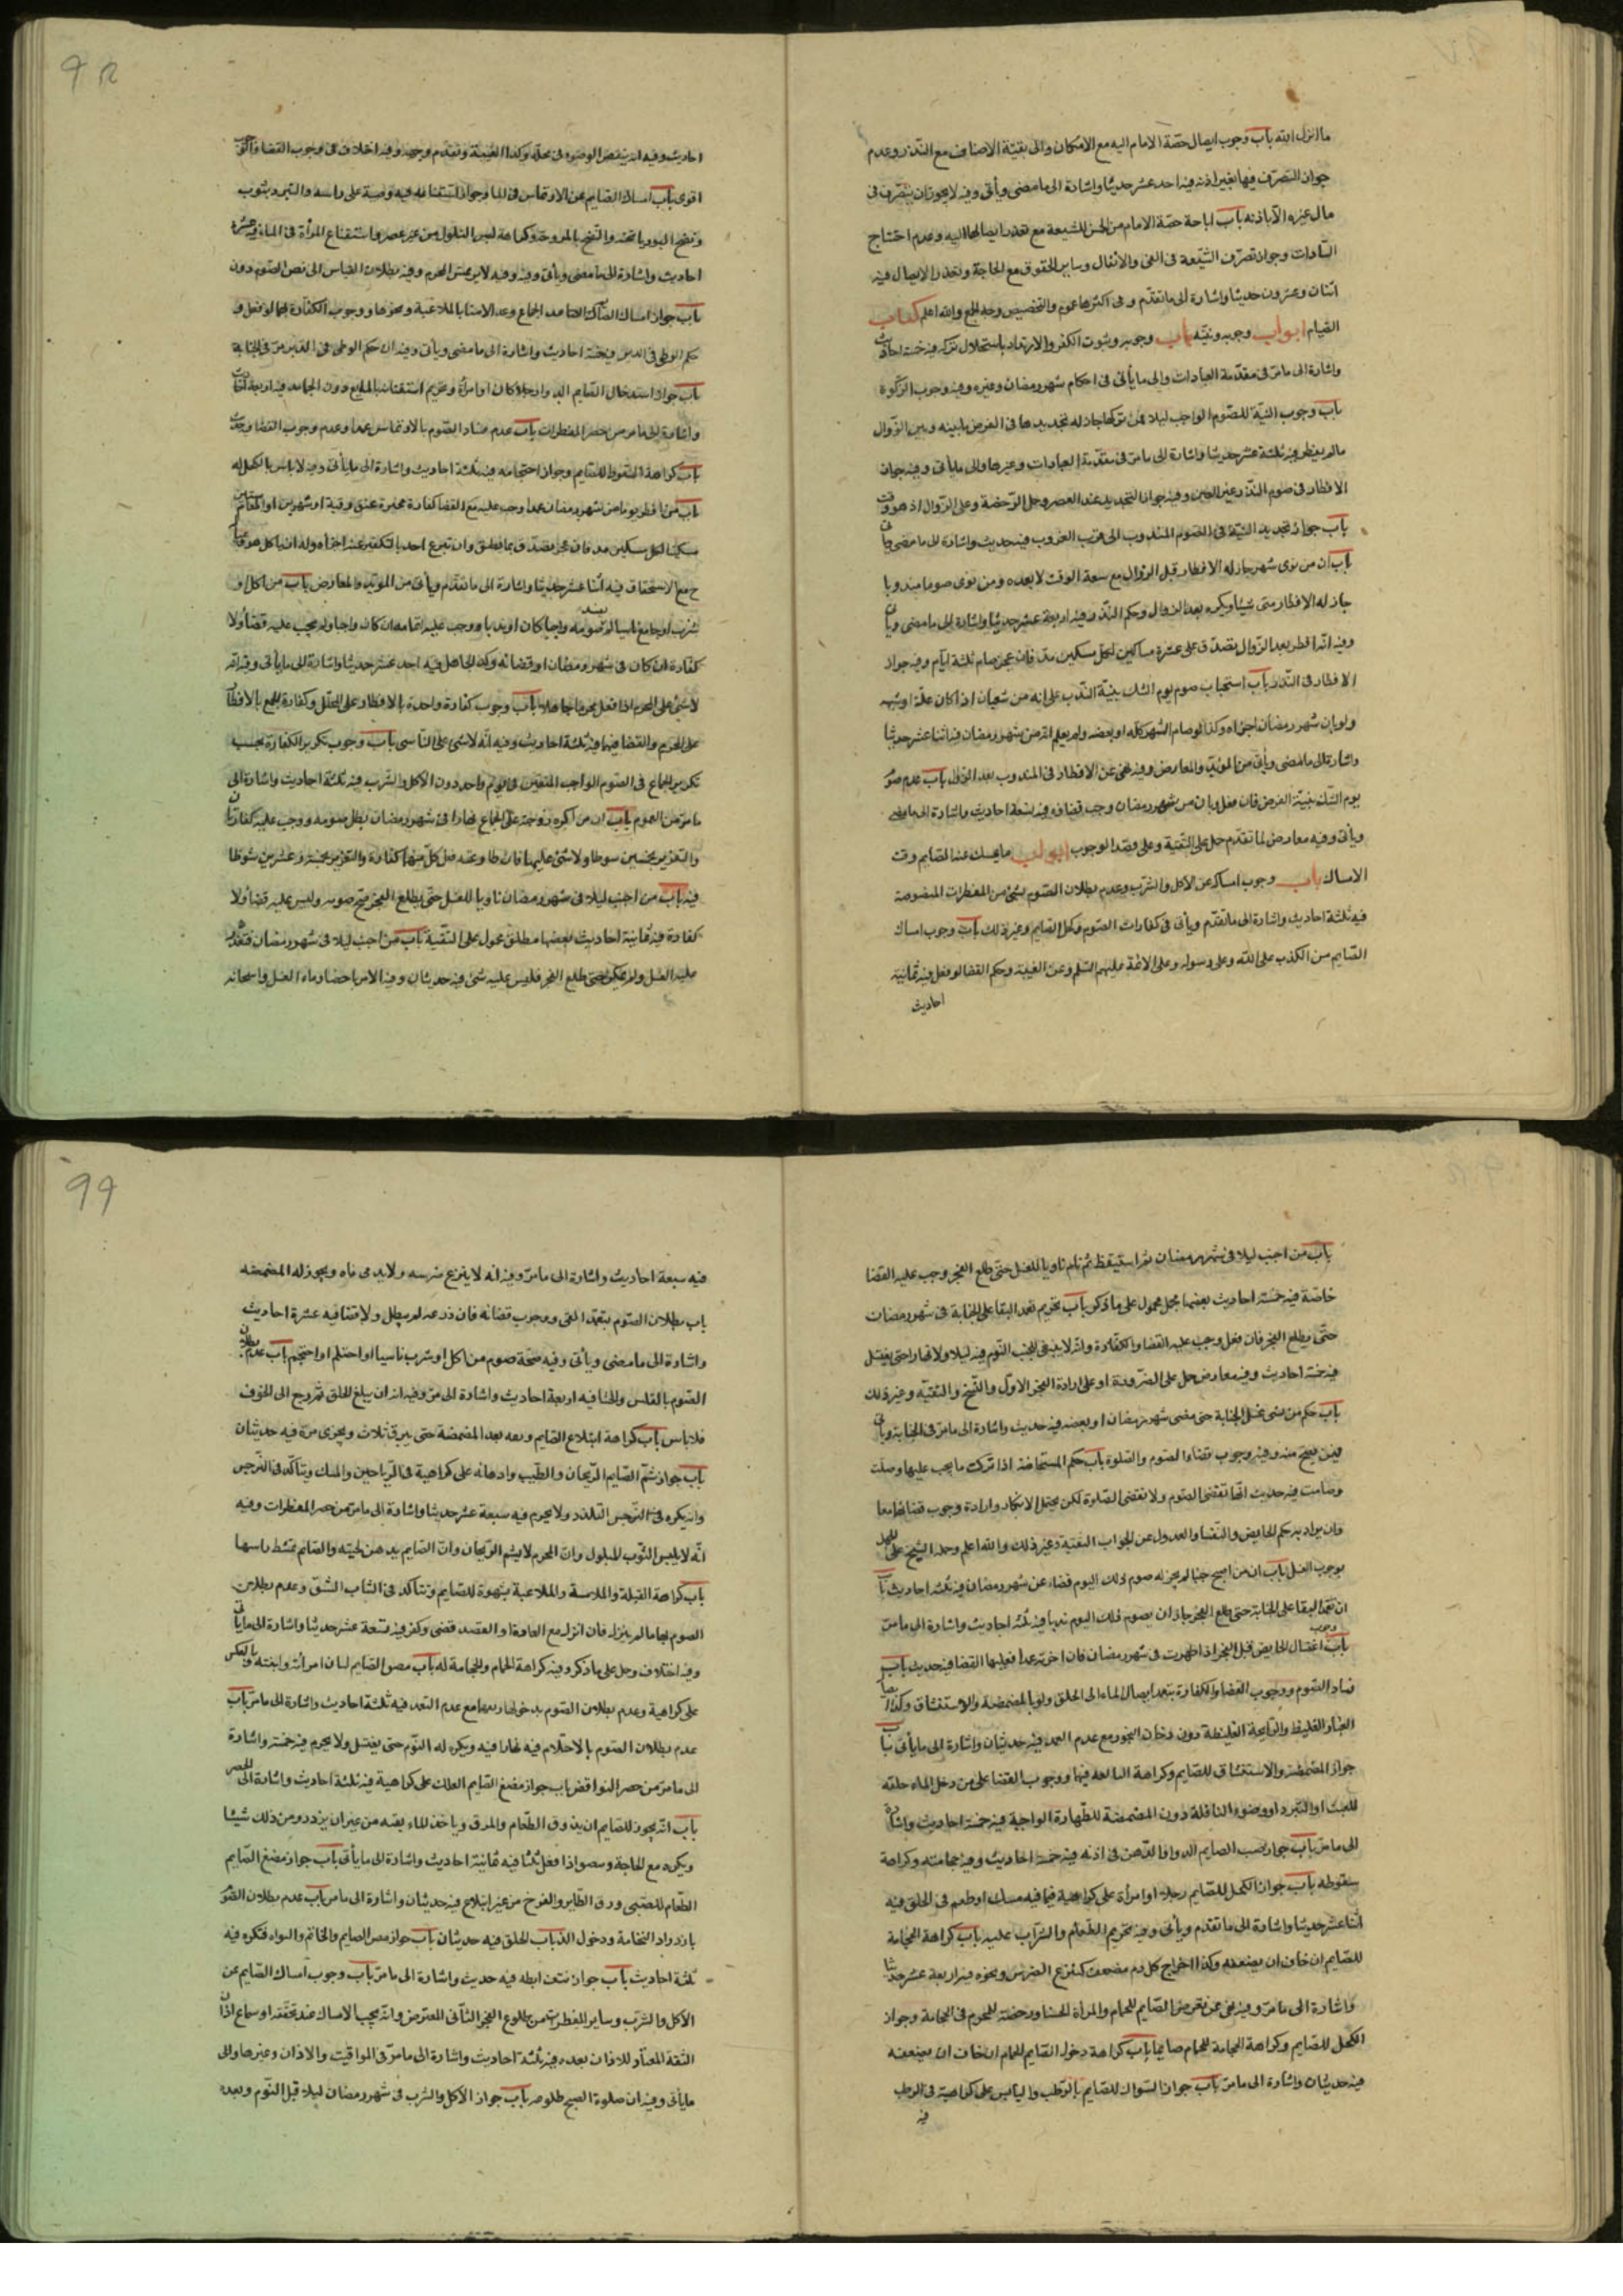 ما انزل الله باب وجوب ايصال حصة الامام اليه مع الامكان والى بقية الاصناف مع التعذر وعدم
جواز التصرف فيها بغير اذنه فيه احد عشر حديثا واشارة الى ما مضى ويأتى وفيه لا يجوز ان يتصرف فى
مال غيره الا باذنه باب اباحة حصة الامام من الخمس للشيعة مع تعذر ايصالها اليه وعدم احتياج
السادات وجواز تصرف الشيعة فى الفىء والانفال وساير الحقوق مع الحاجة وتعذر الايصال فيه
اثنان وعشرون حديثا واشارة الى ما تقدم وفى اكثرها عموم والتخصيص وجه الجمع والله اعلم كتاب
الصيام ابواب وجوبه ونيته باب وجوبه وثبوت الكفر والارتداد باستحلال تركه فيه خمسة احاديث
واشارة الى ما مر فى مقدمة العبادات والى ما يأتى فى احكام شهر رمضان وغيره وفيه وجوب الزكوة
باب وجوب النية للصوم الواجب ليلا فمن تركها جاز له تجديدها فى الفرض ما بينه وبين الزوال
ما لم يفطر فيه ثلثة عشر حديثا واشارة الى ما مر فى مقدمة العبادات وغيرها والى ما يأتى وفيه جواز
الافطار فى صوم النذر غير المعين وفيه جواز التجديد عند العصر وحمل الرخصة وعلى الزوال اذ هو وقت
باب جواز تجديد النية فى الصوم المندوب الى قرب الغروب فيه حديث واشارة الى ما مضى ويأتى
باب ان من نوى شهر جاز له الافطار قبل الزوال مع سعة الوقت لا بعده ومن نوى صوما مندوبا
جاز له الافطار متى شيئا ويكره بعد الزوال وحكم النذر وفيه اربعة عشر حديثا واشارة الى ما مضى ويأتى
وفيه انه افطر بعد الزوال يتصدق على عشرة مساكين لكل مسكين مد فان عجز صام ثلثة ايام وفيه جواز
الافطار فى النذر باب استحباب صوم يوم الشك بنية الندب على انه من شعبان اذا كان علة او شبهه
ولو بان شهر رمضان اجزاه وكذا لو صام الشهر كله او بعضه ولم يعلم انه من شهر رمضان فيه اثنا عشر حديثا
واشارة الى ما مضى ويأتى من المؤيد والمعارض وفيه نهى عن الافطار فى المندوب بعد الزوال باب عدم صوم
يوم الشك بنية الفرض فان فعل وبان من شهر رمضان وجب قضاؤه فيه سبعة احاديث واشارة الى ما مضى
ويأتى وفيه معارض لما تقدم حمل على التقية وعلى قصد الوجوب ابواب ما يمسك عنه الصايم وقت
الامساك باب وجوب امساكه عن الاكل والشرب وعدم بطلان الصوم بشىء من المفطرات المنصوصة
فيه ثلثة احاديث واشارة الى ما تقدم ويأتى فى كفارات الصوم وكحل الصايم وغير ذلك باب وجوب امساك
الصايم من الكذب على الله وعلى رسوله وعلى الائمة عليهم السلم وعن الغيبة وحكم القضا لو فعل فيه ثمانية
احاديث
احاديث وفيه انه ينقض الوضوء فى محله وكذا الغيبة وتقدم وجهه وفيه اختلاف فى وجوب القضا
اقوى باب امساك الصايم عن الارتماس فى الما وجواز استنقاعه فيه وصبه على راسه والتبرد بثوب
ونضح البوريا تحته والنضح بالمروحة وكراهة لبس المبلول من غير عصر واستنقاع المرأة فى الما وفيه عشرة
احاديث واشارة الى ما مضى ويأتى وفيه وفيه لا يرتمس المحرم وفيه بطلان القياس الى نص الصوم دون
باب جواز امساك الصايم الجماع وعن الامنا بالملاعبة ونحوها ووجوب الكفارة بها لو فعل و
حكم الوطى فى الدبر فيه خمسة احاديث واشارة الى ما مضى ويأتى وفيه ان حكم الوطى فى الدبر مر فى الجنابة
باب جواز استدخال الصايم الدوا رجلا كان او امرأة وتحريم احتقانه بالمايع دون الجامد فيه اربعة احاديث
واشارة الى ما مر من حصر المفطرات باب عدم فساد الصوم بالارتماس عمدا وعدم وجوب القضا وفيه حديث
باب كراهة السعوط للصايم وجواز احتجامه فيه ثلثة احاديث واشارة الى ما يأتى وفيه لا باس بالكحل له
باب من افطر يوما من شهر رمضان عمدا وجب عليه مع القضا كفارة مخيرة عتق رقبة او شهرين او اطعام ستين
مسكينا لكل مسكين مد فان عجز تصدق بما يطيق وان تبرع احد بالتكفير عنه اجزأه وله ان ياكل هو وعياله
ح مع الاستحقاق فيه اثنا عشر حديثا واشارة الى ما تقدم ويأتى من المؤيد والمعارض باب من اكل او
شرب او جامع ناسيا لم يفسد صومه واجبا كان او ندبا ووجب عليه اتمامه ان كان واجبا ولم يجب عليه قضا ولا
كفارة ان كان فى شهر رمضان او قضائه وكذا الجاهل فيه احد عشر حديثا واشارة الى ما يأتى وفيه انه
لا شىء على المحرم اذا فعل محرما جاهلا باب وجوب كفارة واحدة بالافطار على المحلل وكفارة الجمع بالافطار
على المحرم والقضا فيهما فيه ثلثة احاديث وفيه انه لا شىء على الناسى باب وجوب تكرير الكفارة بحسب
تكرير الجماع فى الصوم الواجب المتعين فى يوم واحد دون الاكل والشرب فيه ثلثة احاديث واشارة الى
ما مر من العموم باب ان من اكره زوجته على الجماع نهارا فى شهر رمضان بطل صومه ووجب عليه كفارتان
والتعزير بخمسين سوطا ولا شىء عليها فان طاوعته فعلى كل منهما كفارة والتعزير بخمسة وعشرين سوطا
فيه باب من اجنب ليلا فى شهر رمضان ناويا للغسل حتى يطلع الفجر صح صومه وليس عليه قضا ولا
كفارة فيه ثمانية احاديث بعضها مطلق محمول على التقية باب من اجنب ليلا فى شهر رمضان فتعذر
عليه الغسل ولم يمكن حتى طلع الفجر فليس عليه شىء فيه حديثان وفيه الامر باحضار ماء الغسل واسخانه
باب من اجنب ليلا فى شهر رمضان ثم استيقظ ثم نام ناويا للغسل حتى طلع الفجر وجب عليه القضا
خاصة فيه خمسة احاديث بعضها مجمل محمول على ما ذكر باب تحريم تعمد البقا على الجنابة فى شهر رمضان
حتى يطلع الفجر فان فعل وجب عليه القضا والكفارة وانه لا ينبغى للجنب النوم فيه ليلا ولا نهارا حتى يغتسل
فيه خمسة احاديث وفيه معارض حمل على الضرورة او على ارادة الفجر الاول والنسخ والتقية وغير ذلك
باب حكم من نسى غسل الجنابة حتى مضى شهر رمضان او بعضه فيه حديث واشارة الى ما مر فى الجنابة ويأتى
فيمن يصح منه وفيه وجوب قضاء الصوم والصلوة باب حكم المستحاضة اذا تركت ما يجب عليها وصلت
وصامت فيه حديث انها تقضى الصوم ولا تقضى الصلوة لكن يحتمل الانكار وارادة وجوب قضائهما معا
وان يراد به حكم الحايض والنفسا والعدول عن الجواب للتقية وغير ذلك والله اعلم وحمله الشيخ على الجهل
بوجوب الغسل باب ان من اصبح جنبا لم يجز له صوم ذلك اليوم قضاء عن شهر رمضان فيه ثلثة احاديث باب
ان تعمد البقا على الجنابة حتى طلع الفجر جاز ان يصوم ذلك اليوم ندبا فيه ثلثة احاديث واشارة الى ما مر
باب وجوب اغتسال الحايض قبل الفجر اذا طهرت فى شهر رمضان فان اخرته عمدا فعليها القضا فيه حديث باب
فساد الصوم ووجوب القضا والكفارة بتعمد ايصال الماء الى الحلق ولو بالمضمضة والاستنشاق وكذا ايصال
الغبار الغليظ والرايحة الغليظة دون دخان البخور مع عدم العمد فيه حديثان واشارة الى ما يأتى باب
جواز المضمضة والاستنشاق للصايم وكراهة المبالغة فيهما ووجوب القضا على من دخل الماء حلقه
للعبث او التبرد او وضوء النافلة دون المضمضة للطهارة الواجبة فيه خمسة احاديث واشارة
الى ما مر باب جواز صب الصايم الدوا والدهن فى اذنه فيه خمسة احاديث وفيه حجامته وكراهة
سعوطه باب جواز الكحل للصايم رجلا او امرأة على كراهية فيما فيه مسك او طعم فى الحلق فيه
اثنا عشر حديثا واشارة الى ما تقدم ويأتى وفيه تحريم الطعام والشراب عليه باب كراهة الحجامة
للصايم ان خاف ان يضعفه وكذا اخراج كل دم مضعف كنزع الضرس ونحوه فيه اربعة عشر حديثا
واشارة الى ما مر وفيه نهى عن تعرض الصايم للحمام والمرأة الحسنا ورخصة للمحرم فى الحجامة وجواز
الكحل للصايم وكراهة الحجامة للحجام صايما باب كراهة دخول الصايم الحمام ان خاف ان يضعفه
فيه حديثان واشارة الى ما مر باب جواز السواك للصايم بالرطب واليابس على كراهية فى الرطب
فيه
فيه سبعة احاديث واشارة الى ما مر وفيه انه لا ينزع ضرسه ولا يدمى فاه ويجوز له المضمضه
باب بطلان الصوم بتعمد القى ووجوب قضائه فان ذرعه لم يبطل ولا قضا فيه عشرة احاديث
واشارة الى ما مضى ويأتى وفيه صحة صوم من اكل او شرب ناسيا او احتلم او احتجم باب عدم بطلان
الصوم بالقلس والجشا فيه اربعة احاديث واشارة الى مر وفيه انه ان يبلغ الحلق ثم رجع الى الجوف
فلا باس باب كراهة ابتلاع الصايم ريقه بعد المضمضة حتى يبزق ثلاث ويجزى مرة فيه حديثان
باب جواز شم الصايم الريحان والطيب وادهانه على كراهية فى الرياحين والمسك ويتاكد فى النرجس
وانه يكره فى النرجس التلذذ ولا يحرم فيه سبعة عشر حديثا واشارة الى ما مر من حصر المفطرات وفيه
انه لا يلبس الثوب المبلول وان المحرم لا يشم الريحان وان الصايم يدهن لحيته والصائم تمشط راسها
باب كراهة القبلة والملامسة والملاعبة بشهوة للصايم وتتاكد فى الشاب الشبق وعدم بطلان
الصوم بها ما لم ينزل فان انزل مع العادة او القصد قضى وكفر فيه تسعة عشر حديثا واشارة الى ما يأتى
وفيه اختلاف وحمل على ما ذكر وفيه كراهة الحمام والحجامة له باب مص الصايم لسان امرأته وابنته وبالعكس
على كراهية وعدم بطلان الصوم بدخول ريقهما مع عدم التعمد فيه ثلثة احاديث واشارة الى ما مر باب
عدم بطلان الصوم بالاحتلام فيه نهارا فيه ويكره له النوم حتى يغتسل ولا يحرم فيه خمسة واشارة
الى ما مر من حصر النواقض باب جواز مضغ الصايم العلك على كراهية فيه ثلثة احاديث واشارة الى الحصر
باب انه يجوز للصايم ان يذوق الطعام والمرق وياخذ الماء بفيه من غير ان يزدرد من ذلك شيئا
ويكره مع الحاجة وبصق اذا فعل ثلثا فيه ثمانية احاديث واشارة الى ما يأتى باب جواز مضغ الصايم
الطعام للصبى وزق الطاير والفرخ من غير ابتلاع فيه حديثان واشارة الى ما مر باب عدم بطلان الصوم
بازدراد النخامة ودخول الذباب الحلق فيه حديثان باب جواز مص الصايم الخاتم والنواة فتكره فيه
ثلثة احاديث باب جواز نتف ابطه فيه حديث واشارة الى ما مر باب وجوب امساك الصايم عن
الاكل والشرب وساير المفطرات من طلوع الفجر الثانى المعترض وانه يجب الامساك عند تحققه او سماع اذان
الثقة المعتاد للاذان بعده فيه ثلثة احاديث واشارة الى ما مر فى المواقيت والاذان وغيرها والى
ما يأتى وفيه ان صلوة الصبح طلوعه باب جواز الاكل والشرب فى شهر رمضان ليلا قبل النوم وبعده